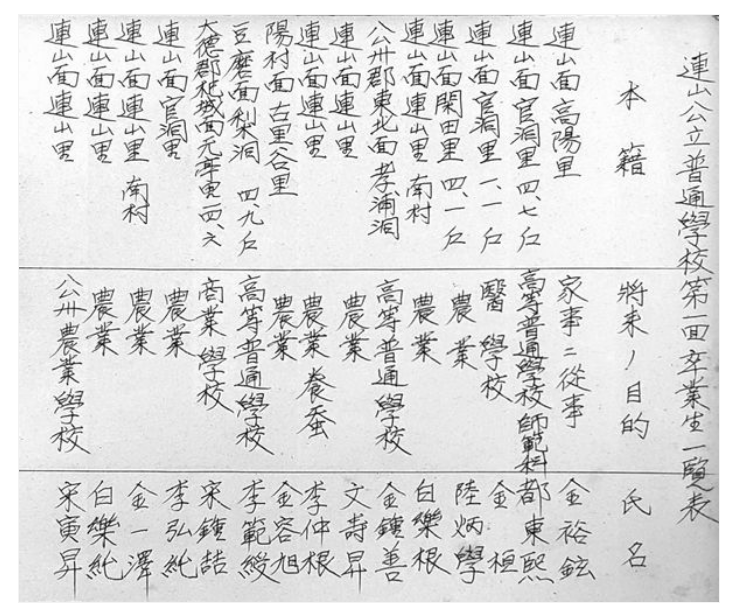 連山公立普通學校第一回卒業生一覽表
本籍 將來ノ目的 氏名
連山面高陽里 家事ニ從事 金裕鉉
連山面官洞里 四、七 高等普通學校師範科 都東熙
連山面官洞里 一、一 醫學校 金桓
連山面閑田里 四、一 農業 陸炳學
連山面連山里 南村 農業 白樂根
公州郡東北面孝浦洞 高等普通學校 金鍾善
連山面連山里 農業 文壽昇
連山面連山里 農業養蚕 李仲根
陽村面古里谷里 農業 金容旭
豆磨面梨洞 四、九 高等普通學校 李範綬
大德郡杞城面元亭里 四、六 商業學校 宋鍾喆
連山面官洞里 農業 李弘純
連山面連山里 南村 農業 金一澤
連山面連山里 農業 白樂純
連山面連山里 公州農業學校 宋寅昇